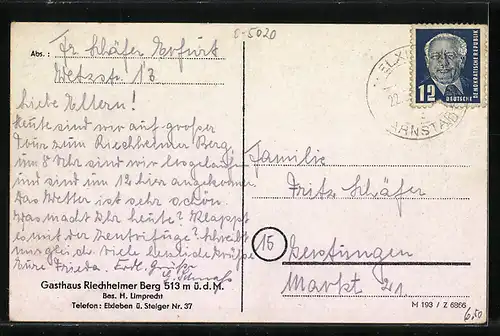 0-5020
Abs.: Fr. Schäfer Erfurt
13
Liebe Eltern!
Heute sind wir auf großer
Tour zum Riechheimer Berg,
um 8 Uhr sind wir losgelaufen
und sind um 12 hier angekommen.
Das Wetter ist sehr schön.
Was macht Ihr heute? Klappt
es mit der Zentrifuge? Schreibt
mir gleich. Viele Grüße
Eure Frieda.
Gasthaus Riechheimer Berg 513 m ü. d. M.
Bes. H. Limprecht
Telefon: Elxleben ü. Steiger Nr. 37
12
DEUTSCHE
DEMOKRATISCHE REPUBLIK
ARNSTADT
Familie
Fritz Schäfer
15
Gerstungen
Markt 21
M 193 / Z 6866
6,50